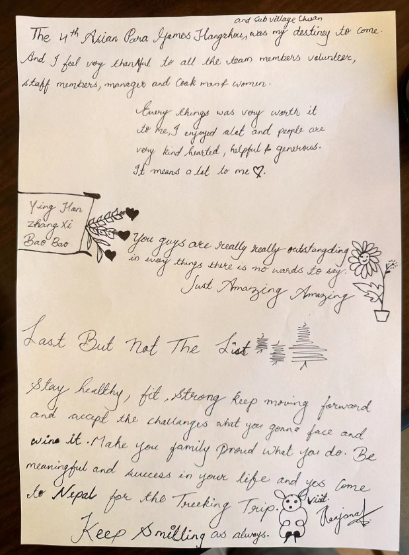 and Sub village Chuan
The 4th Asian Para Games Hangzhou, was my destiney to come.
And I feel very thankful to all the team members volunteer,
staff members, manager and Cook man & women.
Every things was very worth it
to me, I enjoyed alot and people are
very kind hearted, helpful & generous.
It means a lot to me
Ying Han
zhang Xi
Bao Bao
You guys are really really outstangding
in every things there is no words to say.
Just Amazing Amazing
Last But Not The List
Stay healthy, fit, strong keep moving forward
and accept the challanges what you gonna face and
wine it. Make you family proud what you do. Be
meaningful and success in your life and yes come
to Nepal for the Treeking Trip. visit.
Keep Smilling as always.